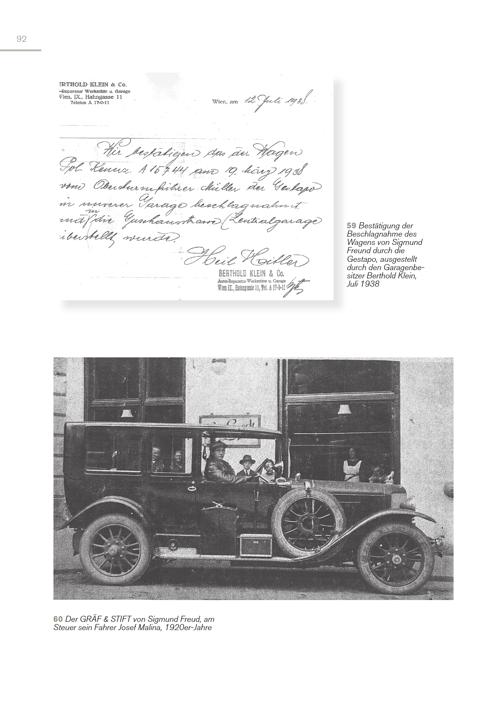 92
BERTHOLD KLEIN & Co.
Auto-Reparatur Werkstätte u. Garage
Wien, IX., Hahngasse 11
Telefon A 17-0-11
Wien, am 12 Juli 1938
Wir bestätigen das der Wagen
Pol. Kennz. A 15744 am 19. März 1938
vom Obersturmführer Müller der Gestapo
in unserer Garage beschlagnahmt
und in die Zentralgarage
überstellt wurde.
Heil Hitler
BERTHOLD KLEIN & Co.
Auto-Reparatur-Werkstätte u. Garage
Wien IX., Hahngasse 11, Tel. A 17-0-11
59 Bestätigung der
Beschlagnahme des
Wagens von Sigmund
Freund durch die
Gestapo, ausgestellt
durch den Garagenbe-
sitzer Berthold Klein,
Juli 1938
60 Der GRÄF & STIFT von Sigmund Freud, am
Steuer sein Fahrer Josef Malina, 1920er-Jahre